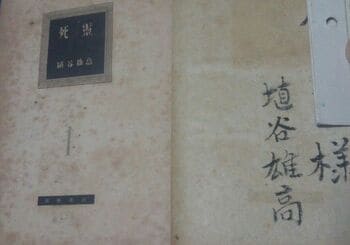 死靈
埴谷雄高
様
埴谷雄高